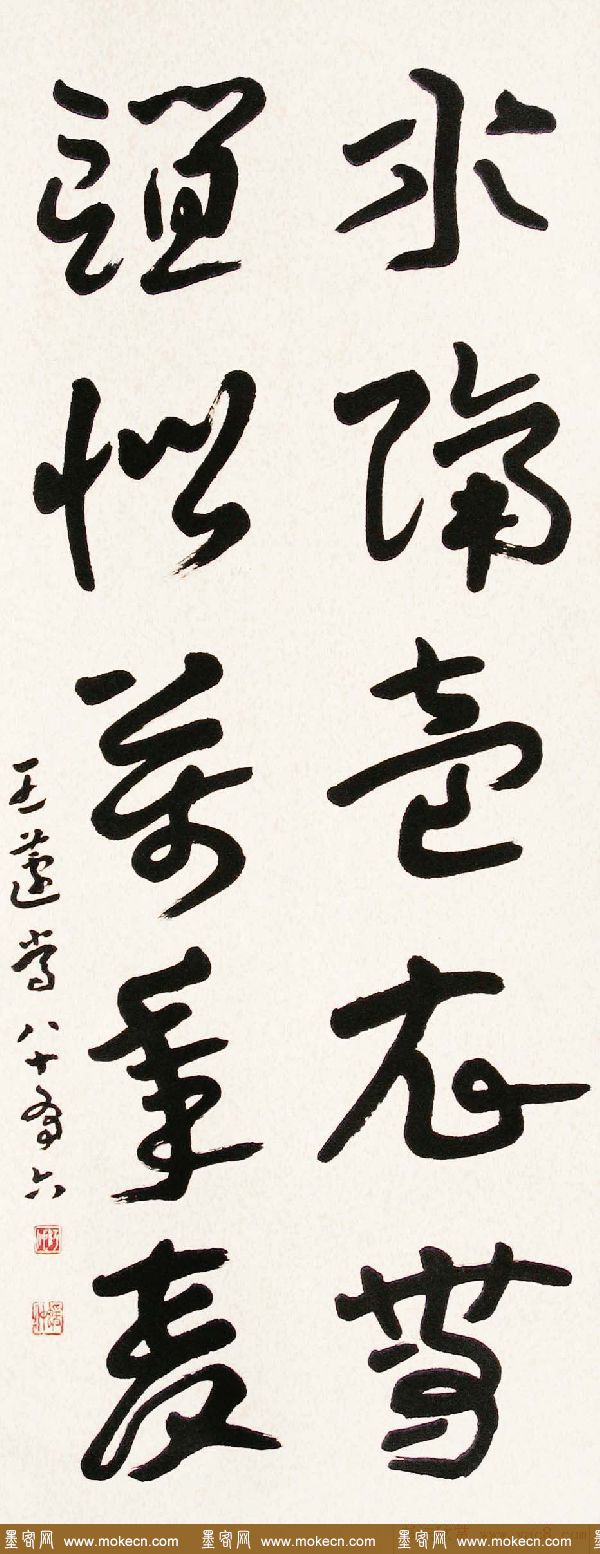 水隔壹衣帶
似萬年
王蘧常八十有六
墨客网 www.mokecn.com 墨客网 www.mokecn.com 墨客网 www.mokecn.com